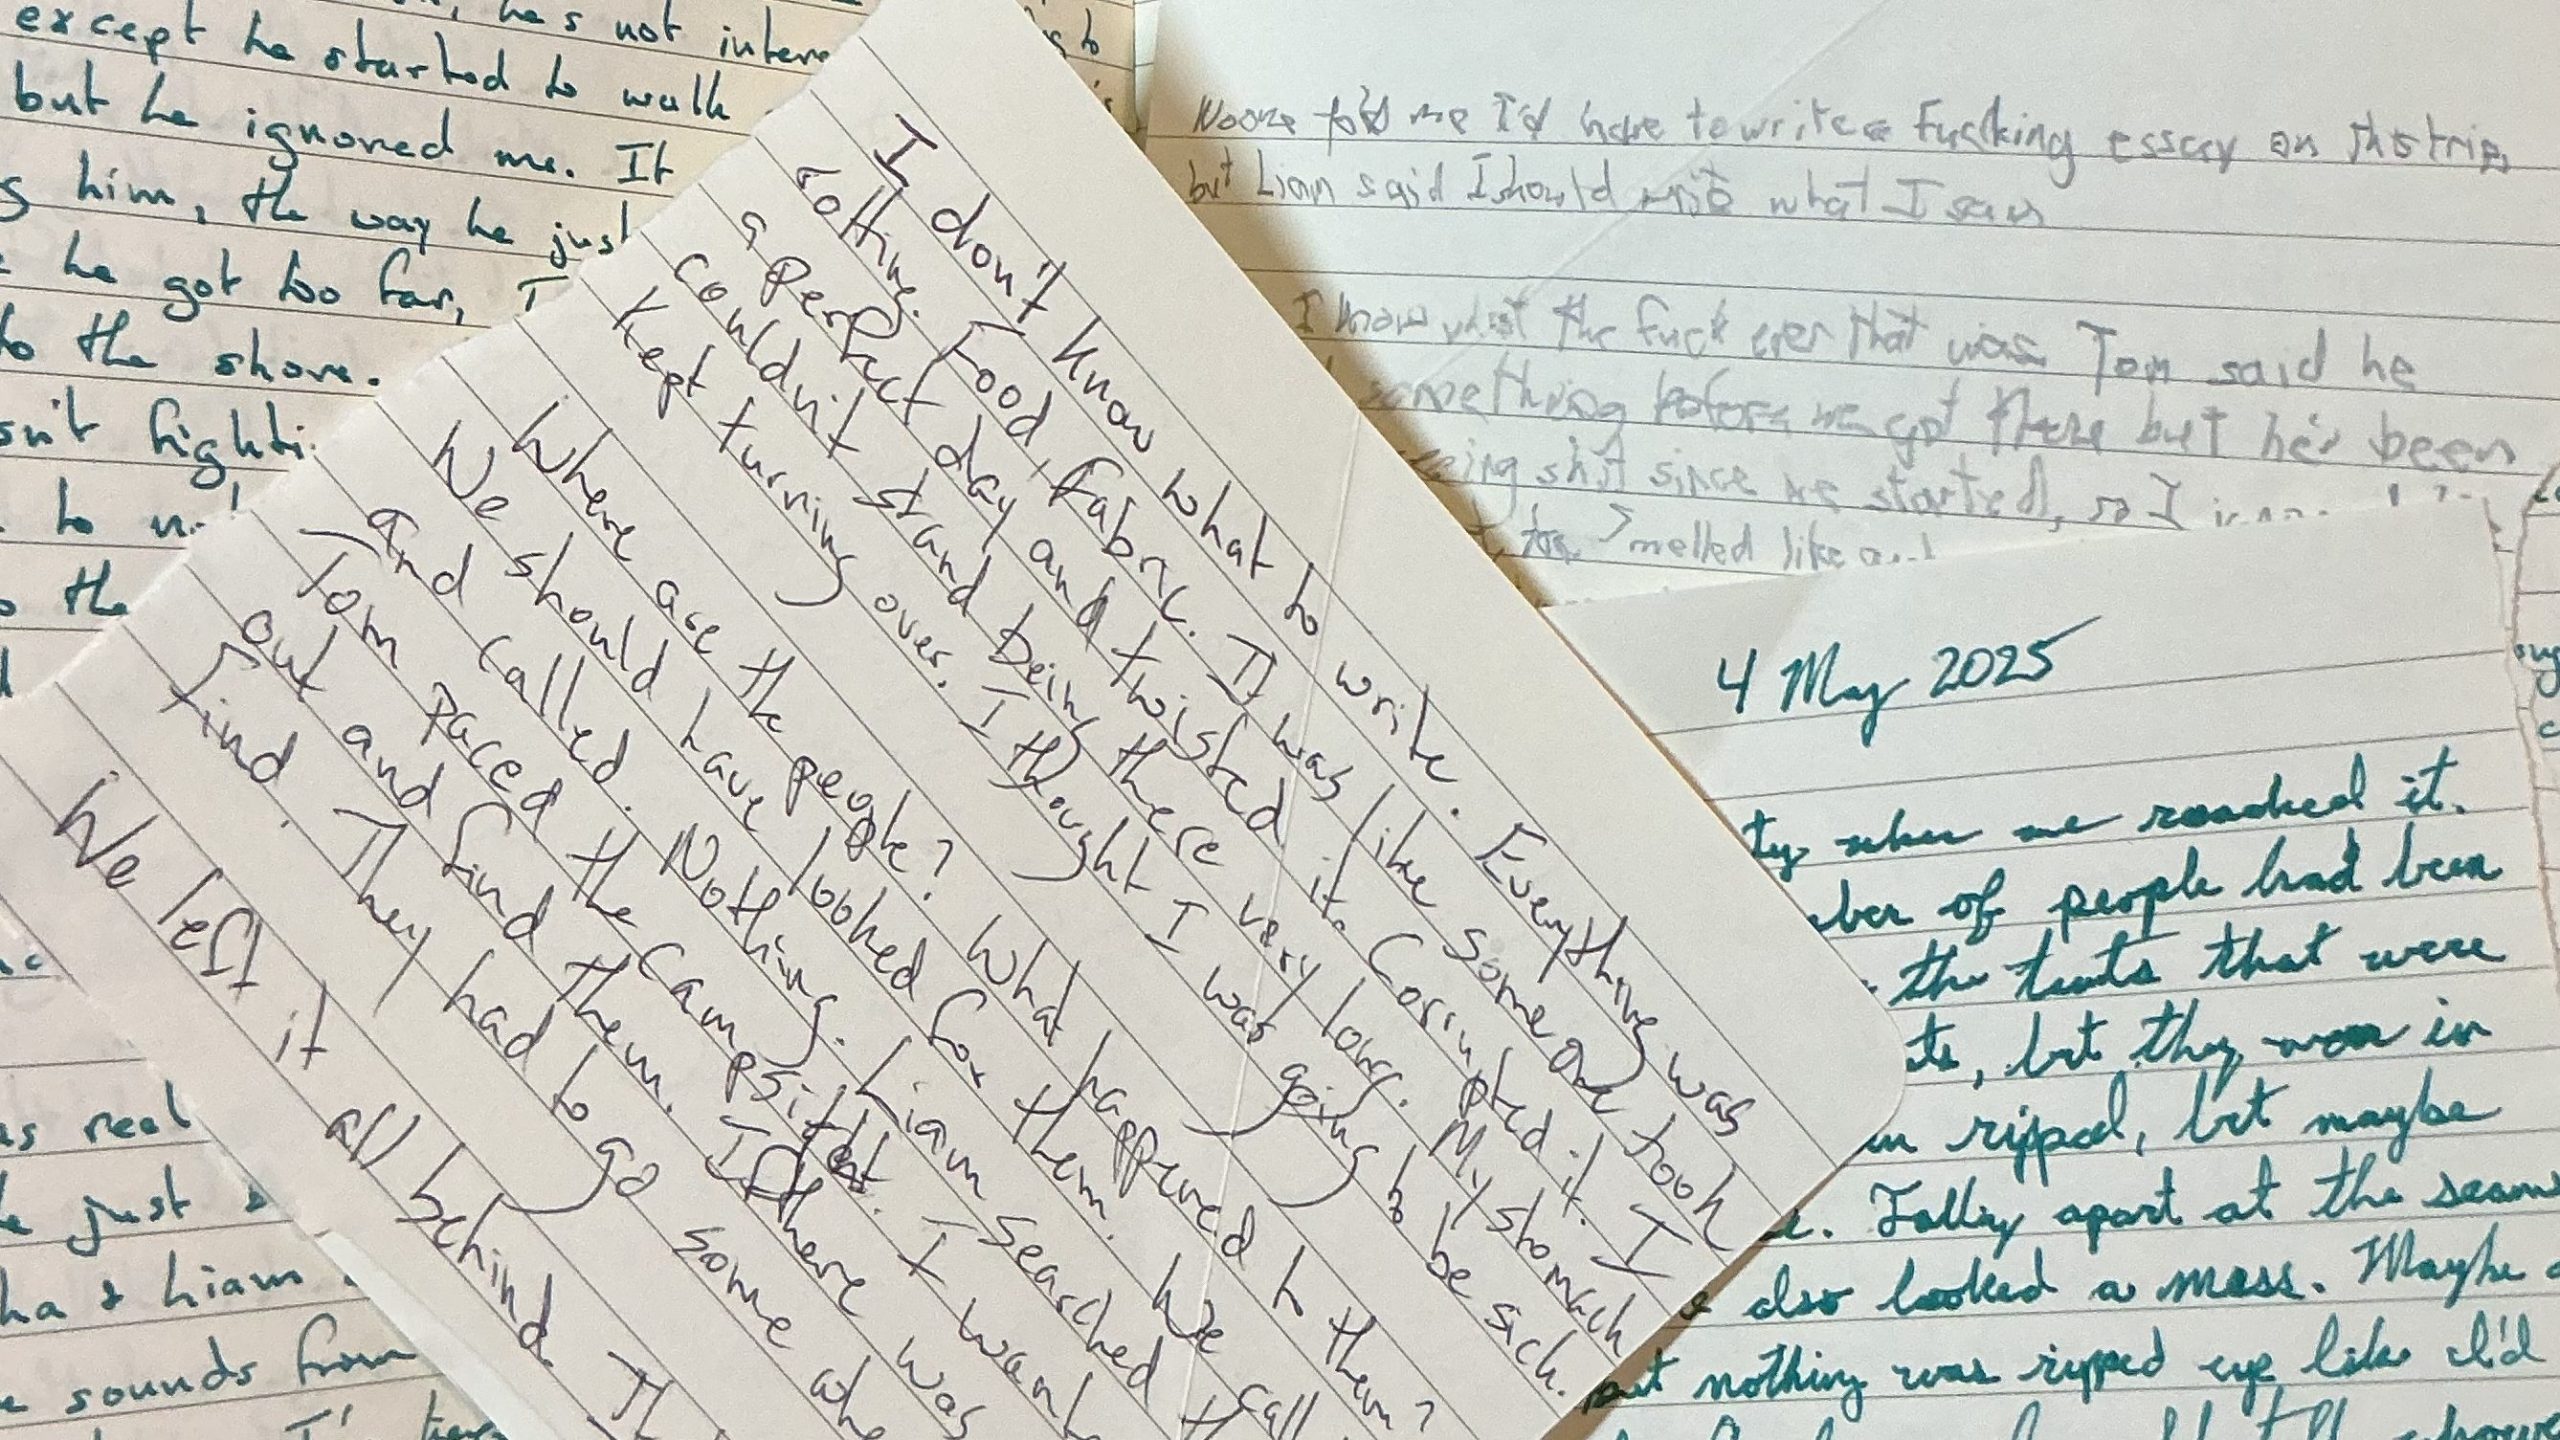 he's not
except he started to walk
but he ignored me. It
him, the way he just
he got too far, I
to the shore.
to
the
real
just
& Liam
sounds from
I don't know what to write. Everything was
rotting. Food, fabric. It was like someone took
a perfect day and twisted it. Corrupted it. I
couldn't stand being there very long. My stomach
kept turning over. I thought I was going to be sick.
Where are the people? What happened to them?
We should have looked for them. We call
and called. Nothing. Liam searched th
Tom paced the campsite. I want
out and find them. If there was
find. They had to go some whe
We left it all behind. Th
Noone told me I'd have to write a fucking essay on this trip,
but Liam said I should write what I saw
I know what the fuck ever that was Tom said he
something before we got there but he's been
shit since we started, so I
smelled like
4 May 2025
when we reached it.
of people had been
the tents that were
but they were in
ripped, but maybe
Falling apart at the seams
also looked a mess. Maybe
but nothing was ripped up like I'd